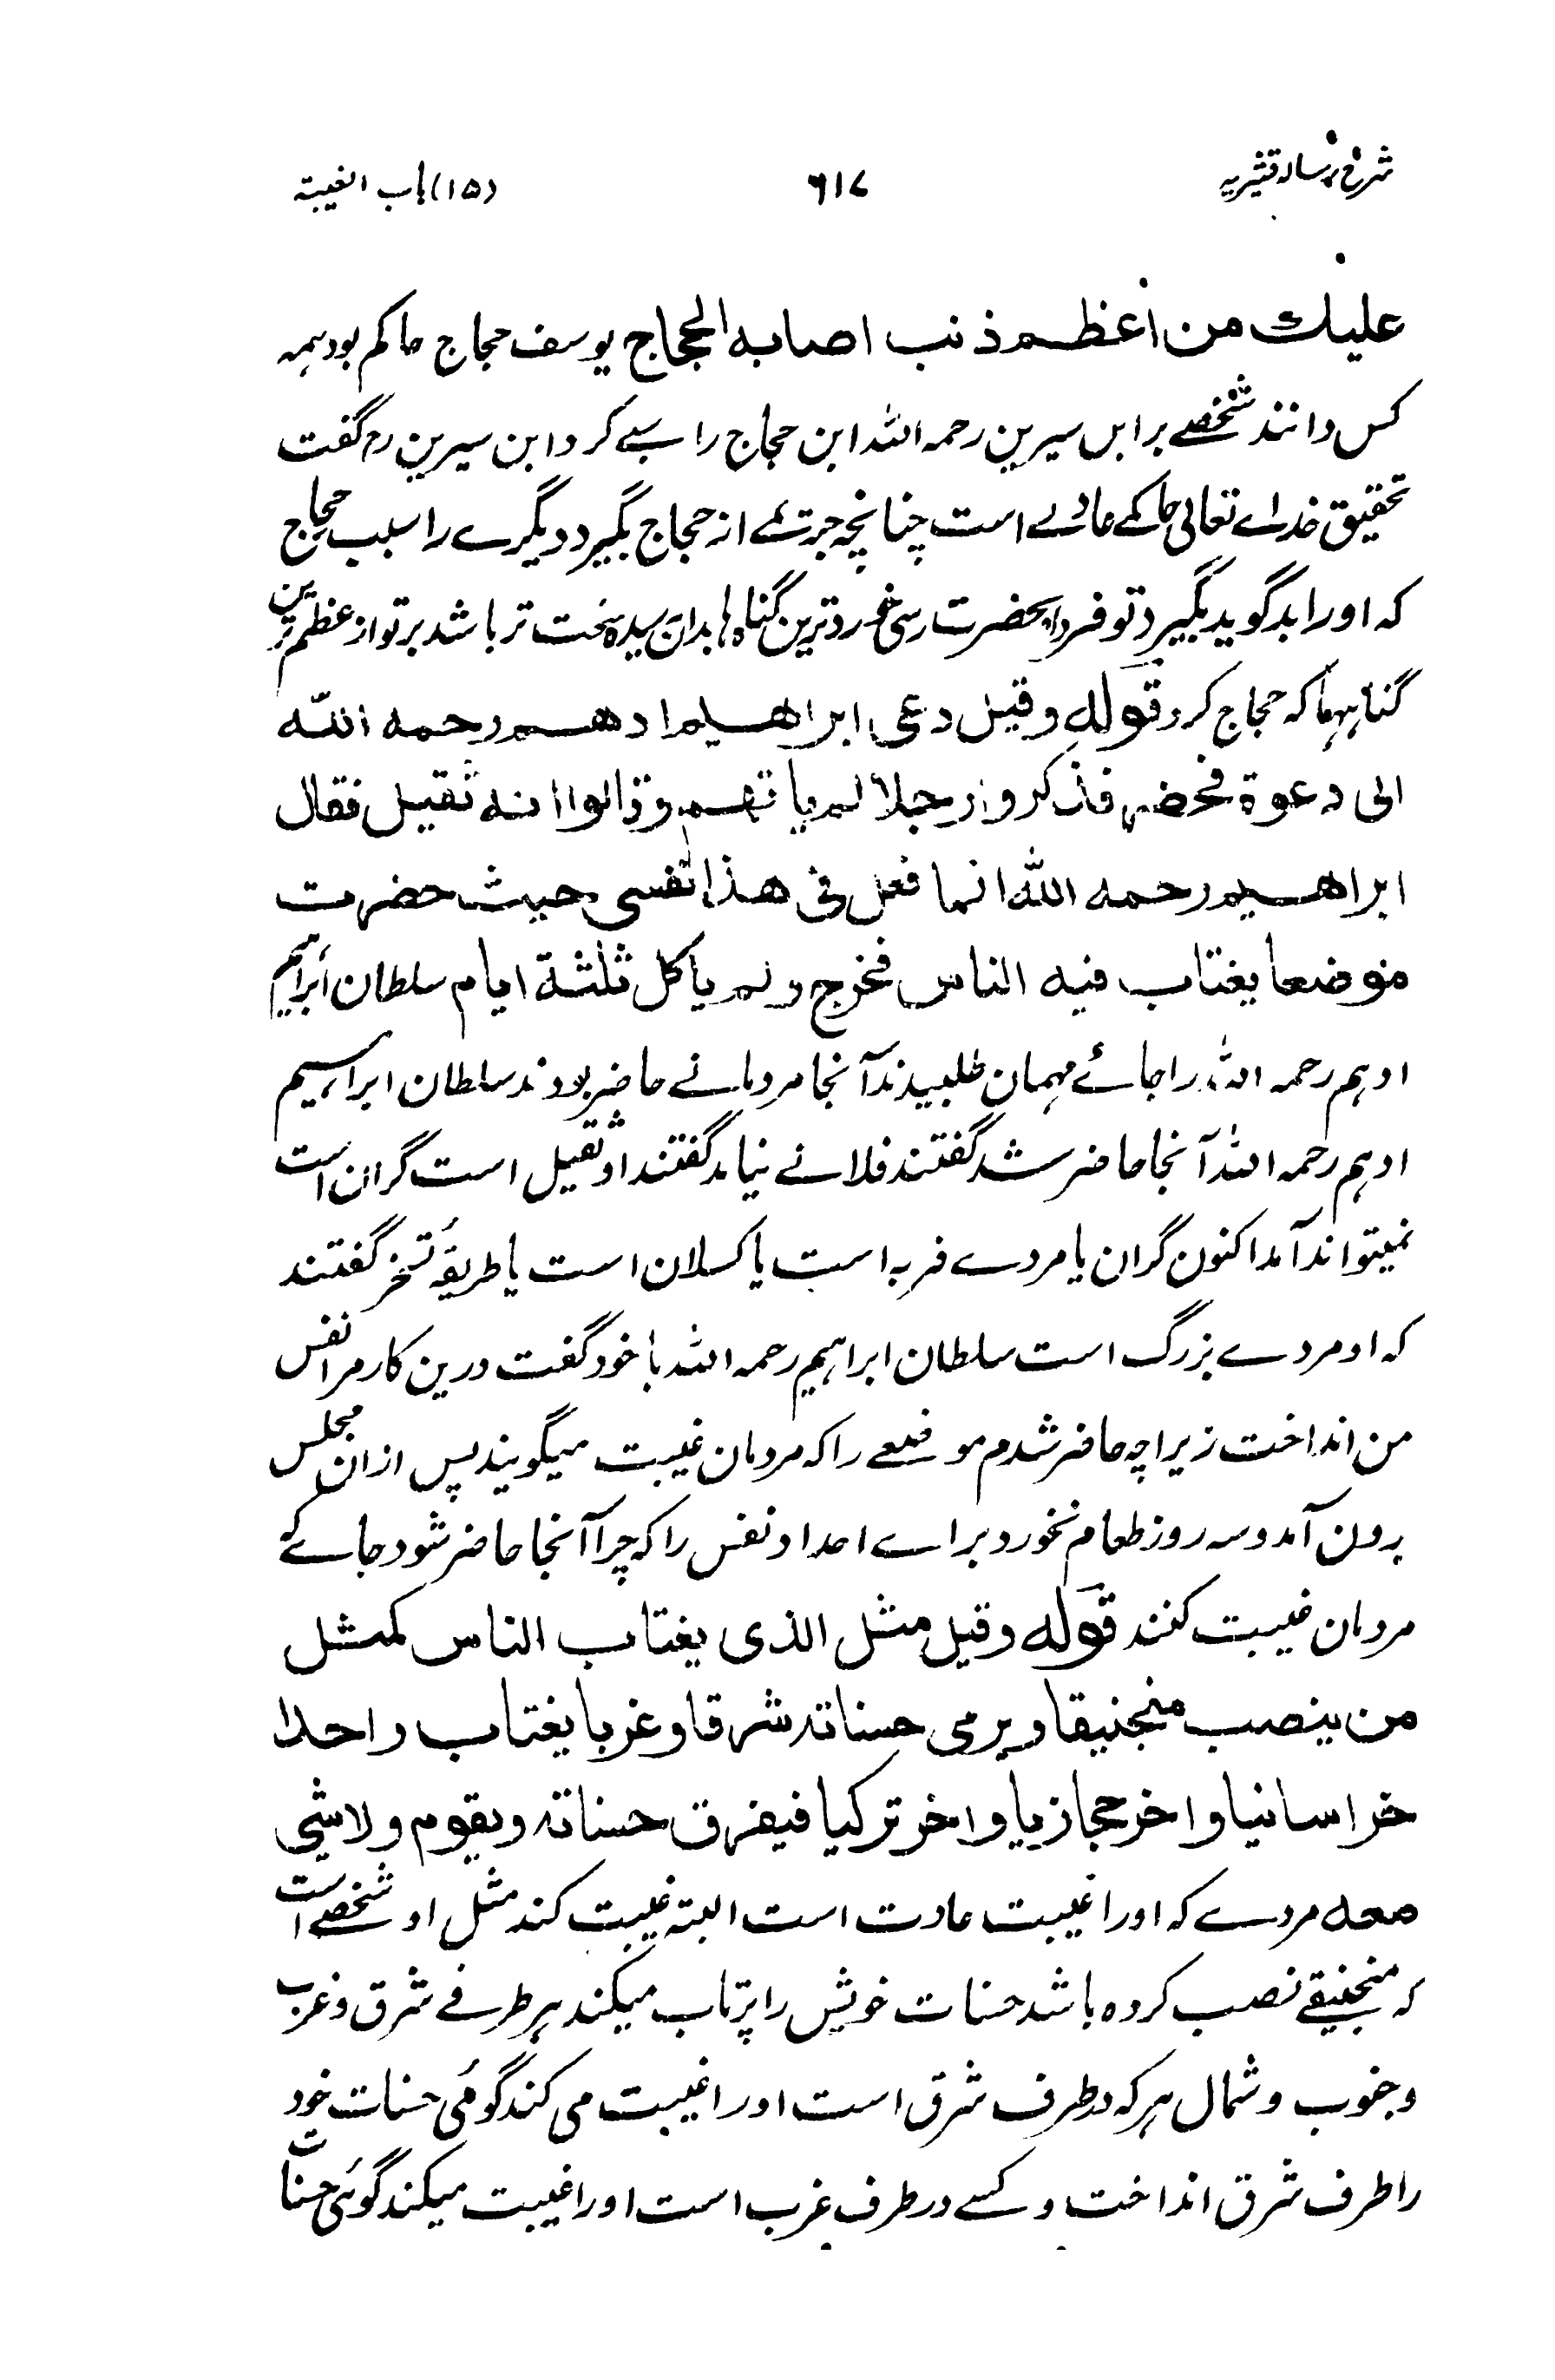 شرح رسالہ قشیریہ ۶۱۷ (۱۵) باب الغیبة
علیك من اعظم ذنب اصابه الحجاج یوسف حجاج حاکم بود ہمہ
کس دانند شخصے برابن سیرین رحمہ اللہ ابن حجاج را سبے کرد ابن سیرین رح گفت
تحقیق خداے تعالی حاکمے عادلے است چنانچہ جرتمے از حجاج بگیرد دیگرے را سبب حجاج
کہ اورا بد گوید بگیرد تو فردا بحضرت رسی خوردترین گناہ ہا بدان رسیدہ سخت تر باشد بر تو از عظم ترین
گناہیہا کہ حجاج کرد قوله وقیل دعی ابراهیم ادهم رحمه الله
الی دعوة فحضر فذکروا رجلا لم یاتهم وقالوا انه ثقیل فقال
ابراهیم رحمه الله انما فعل فی هذا نفسی حیث حضرت
موضعا یغتاب فیه الناس فخرج ولم یاکل ثلثة ایام سلطان ابراہیم
ادہم رحمہ اللہ را جائے مہمان طلبیدند آنجا مردمانے حاضر بودند سلطان ابراہیم
ادہم رحمہ اللہ آنجا حاضر شد گفتند فلانے نیامد گفتند او ثقیل است گران است
نمیتواند آمد اکنون گران یا مردے فربہ است یا کسلان است یا طریقۂ تسخر گفتند
کہ او مردے بزرگ است سلطان ابراہیم رحمہ اللہ با خود گفت درین کار مرا نفس
من انداخت زیراچہ حاضر شدم موضعے را کہ مردمان غیبت میگویند پس ازان مجلس
برون آمد و سہ روز طعام نخورد براے امداد نفس را کہ چرا آنجا حاضر شود جاے کہ
مردمان غیبت کنند قوله وقیل مثل الذی یغتاب الناس کمثل
من ینصب منجنیقا ویرمی حسناته شرقا وغربا یغتاب واحدا
خراسانیا واخر حجازیا واخر ترکیا فیفرق حسناته ویقوم ولاشی
معه مردے کہ اورا غیبت عادت است البتہ غیبت کند مثل او شخصے است
کہ منجنیقے نصب کردہ باشد حسنات خویش را پرتاب میکند ہر طرفے شرق و غرب
و جنوب و شمال ہر کہ در طرف شرق است اورا غیبت می کند گوئی حسنات خود
را طرف شرق انداخت و کسے در طرف غرب است اورا غیبت میکند گوئی حسنات